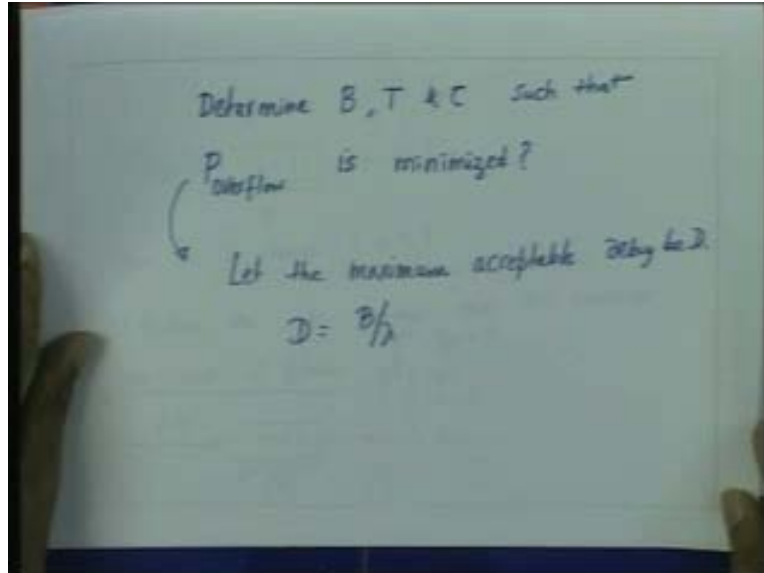 Determine B, T & C such that
P overflow is minimized?
Let the maximum acceptable delay be D.
D = B/λ